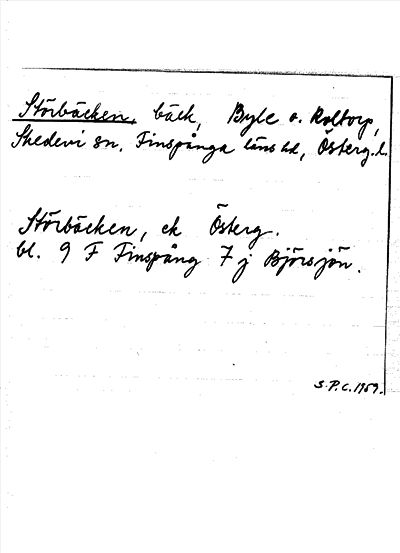 Störbäcken, bäck, Byle o. Roltorp,
Skedevi sn, Finspånga läns hd, Österg. l.
Störbäcken, ek Österg.
bl. 9 F Finspång 7 j Björsjön.
S.P.C. 1959.